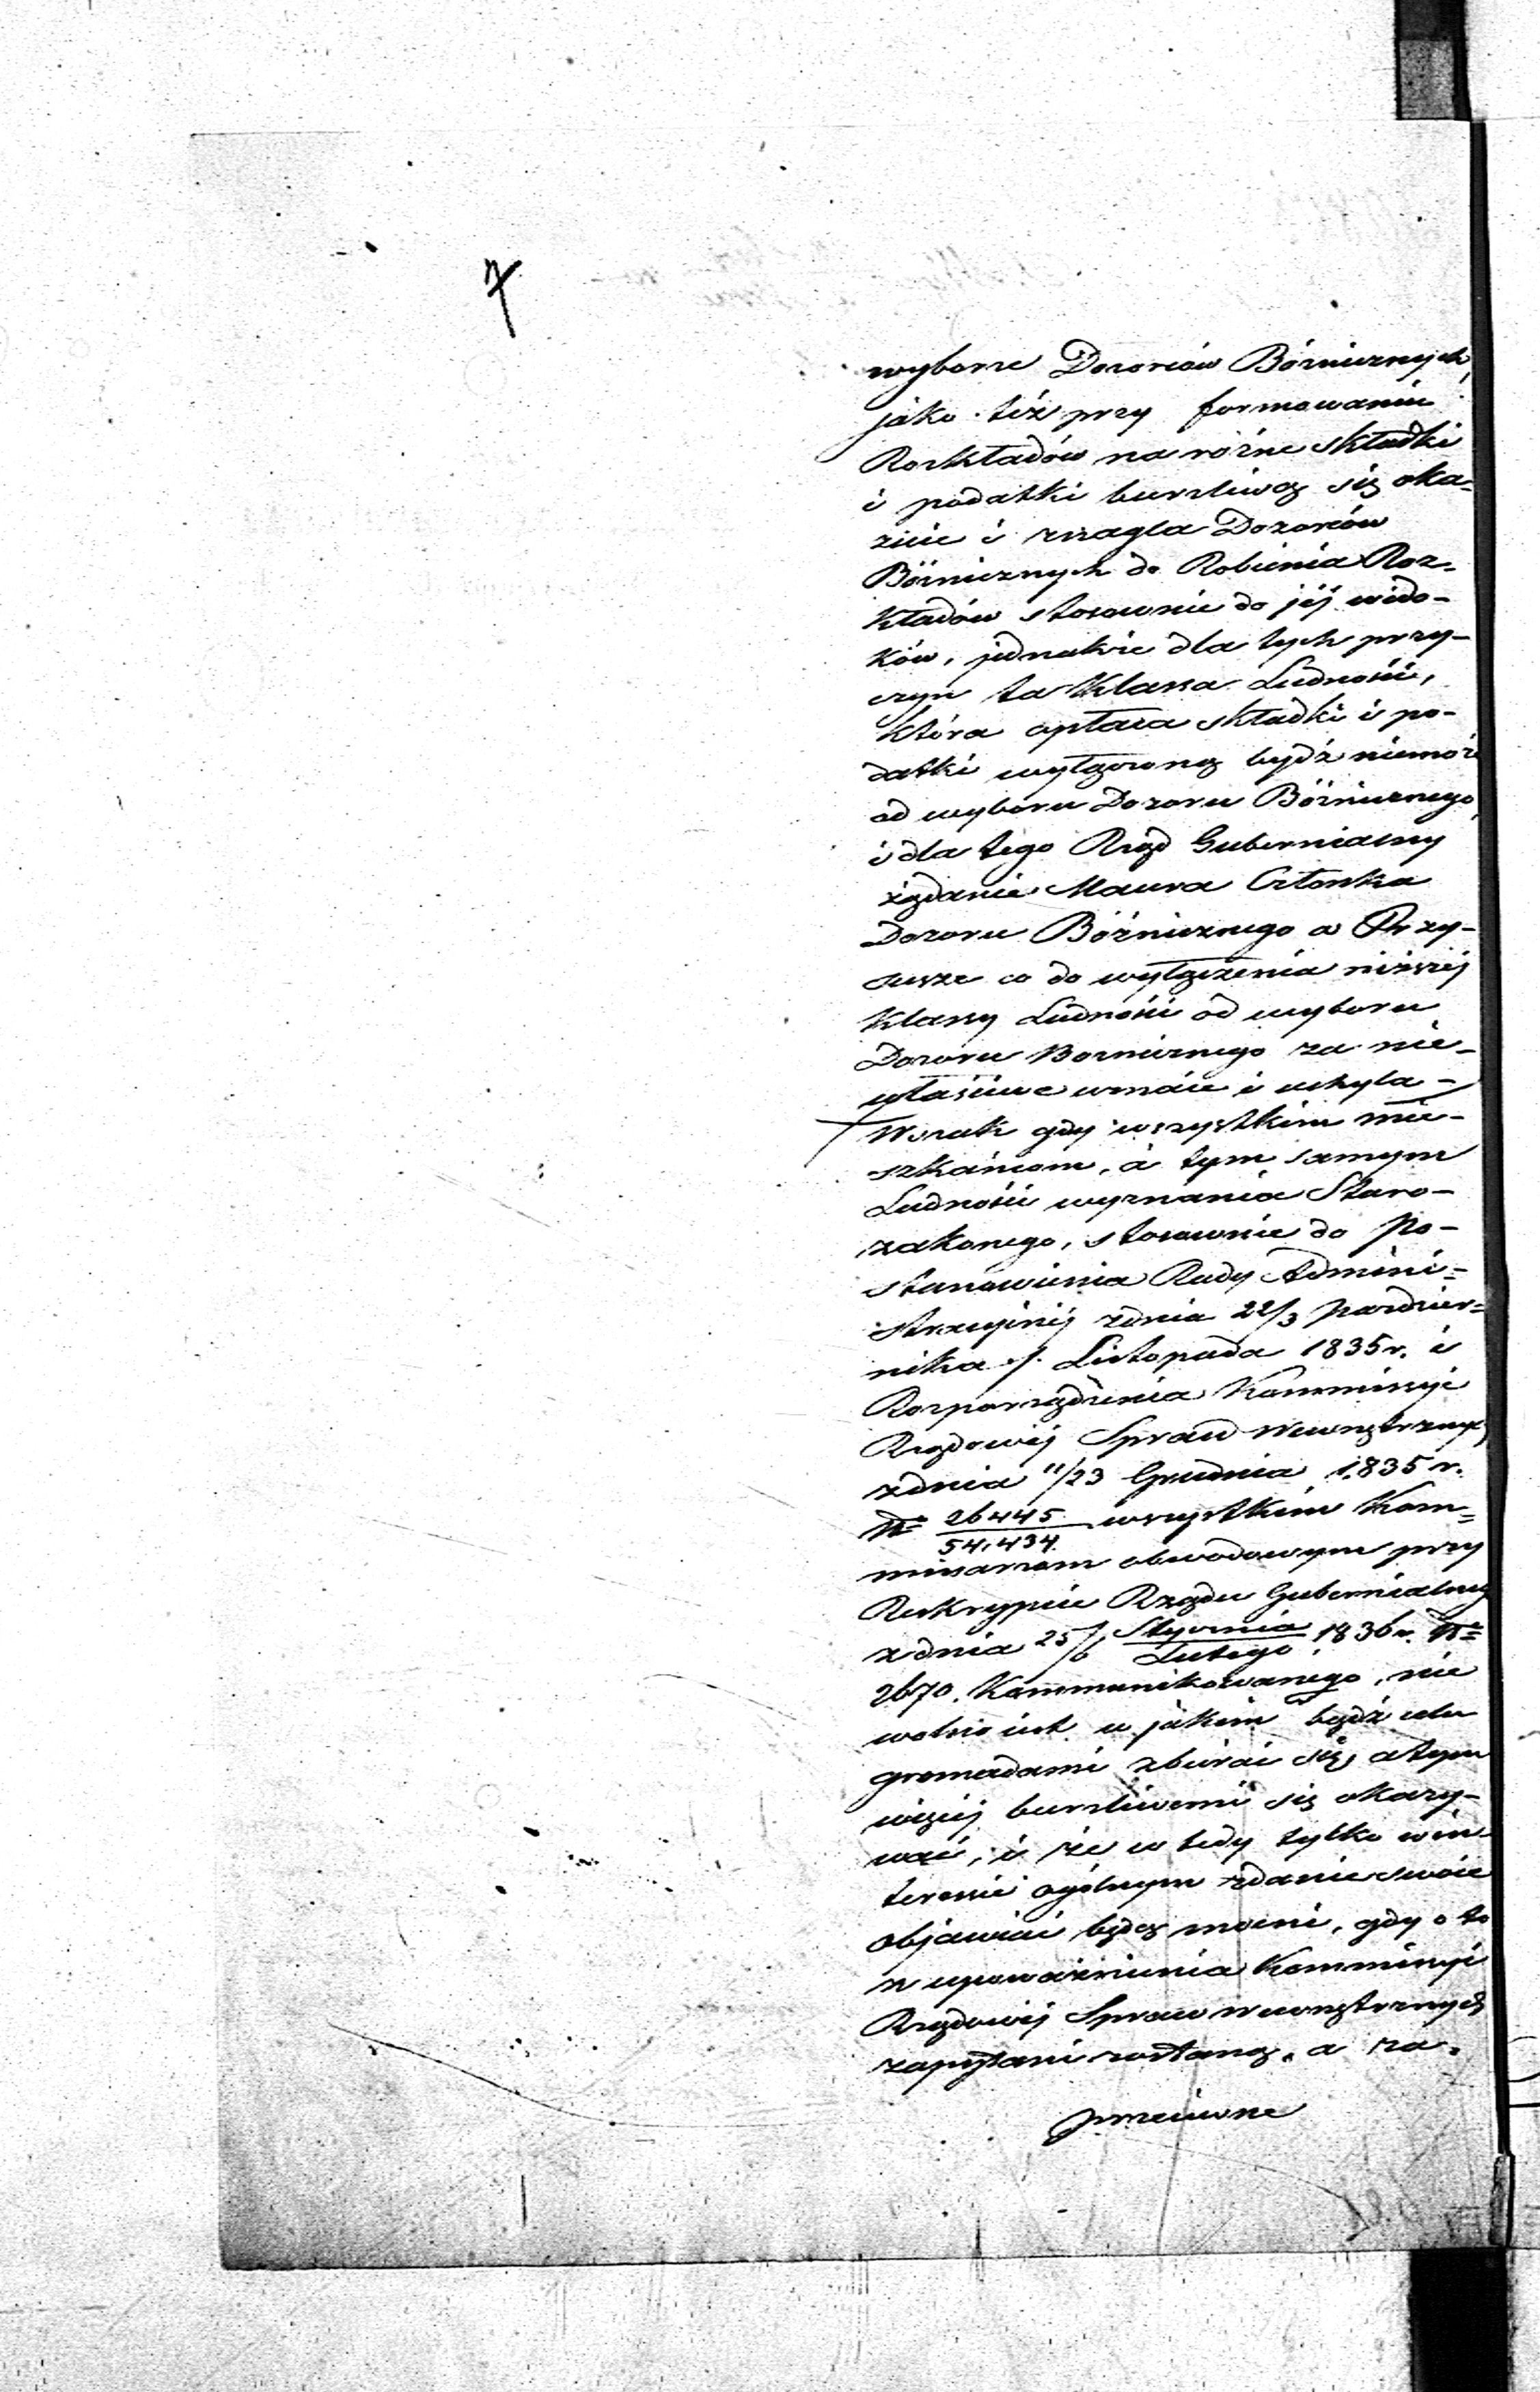 wyborze Dozorców Bóżnicznych,
jako też przy formowaniu
Rozkładów na różne składki
i podatki burzliwą się oka-
zuie i znagla Dozorców
Bóżnicznych do Robienia Roz-
kładów stosownie do jéj wido-
ków, jednakże dla tych przy-
czyn ta Klassa Ludności,
która opłaca składki i po-
datki wyłączoną bydź niemoże
od wyboru Dozoru Bóżnicznego,
i dla tego Rząd Gubernialny
żądanie Maura Członka
Dozoru Bóżnicznego w Przy-
susze co do wyłączenia niższéj
Klassy Ludności od wyboru
Dozoru Boznicznego za nie-
właściwe uznaie i uchyla -
Wszak gdy wszystkim mie-
szkańcom, a tym samym
Ludności wyznania Staro-
zakonnego, stosownie do Po-
stanowienia Rady Admini-
stracyinéj zdnia 22/3 Pazdzier-
nika /. Listopada 1835 r. i
Rozporządzenia Kommissyi
Rządowéj Spraw Wewnętrznych
zdnia 11/23 Grudnia 1835 r.
N 26445/54,434 wszystkim Kom-
missarzom obwodowym przy
Reskrypcie Rządu Gubernialnego
z dnia 25/6 Stycznia/Lutego 1836 r. N
2670. Kommunikowanego, nie
wolno iest w jakim bądź celu
gromadami zbierać się, a tym
więcéj burzliwemi się okazy-
wać, i że w tedy tylko w in-
teressie ogólnym zdanie swoie
objawiać będą mocni, gdy o to
z upoważnienia Kommissyi
Rządowéj Spraw Wewnętrznych
zapytani zostaną, a za-
przeciwne